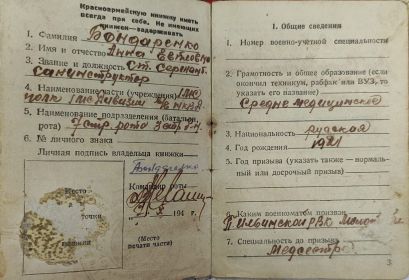 Красноармейскую книжку иметь
всегда при себе. Не имеющих
книжек—задерживать
1. Фамилия Бондаренко
2. Имя и отчество Анна
3. Звание и должность Ст. Сержант
санинструктор
4. Наименование части (учреждения)
полк
5. Наименование подразделения (батальон,
рота) 7 стр. рота 3 стр. б-н
6. № личного знака
Личная подпись владельца книжки
Бондаренко
Место
для
печати
Командир роты
194 г.
(Место
печати части)
I. Общие сведения
1. Номер военно-учётной специальности
2. Грамотность и общее образование (если
окончил техникум, рабфак или ВУЗ, то
указать его название)
Средне медицинское
3. Национальность русская
4. Год рождения 1921
5. Год призыва (указать также — нормаль-
ный или досрочный призыв)
6. Каким военкоматом призван
РВК
7. Специальность до призыва
Медсестра
3